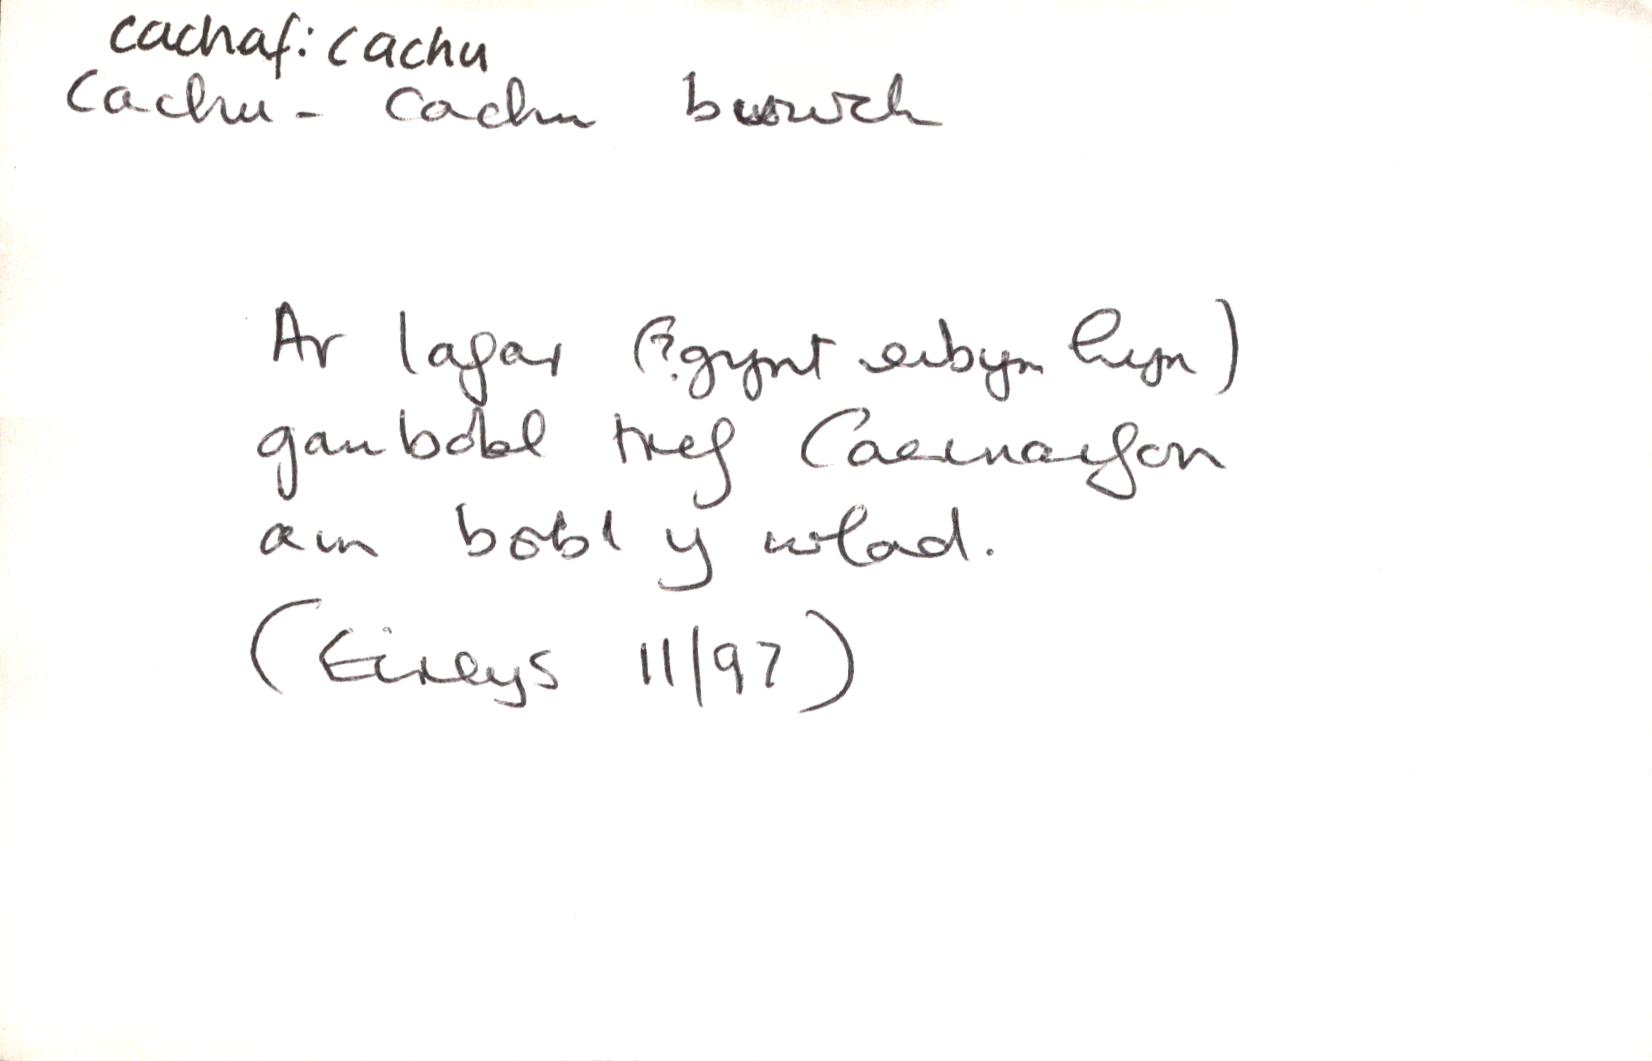 cachaf: cachu
Cachu - cachu buwch
Ar lafar (?gynt erbyn hyn)
gan bobl tref Caernarfon
am bobl y wlad.
(Eirlys 11/97)